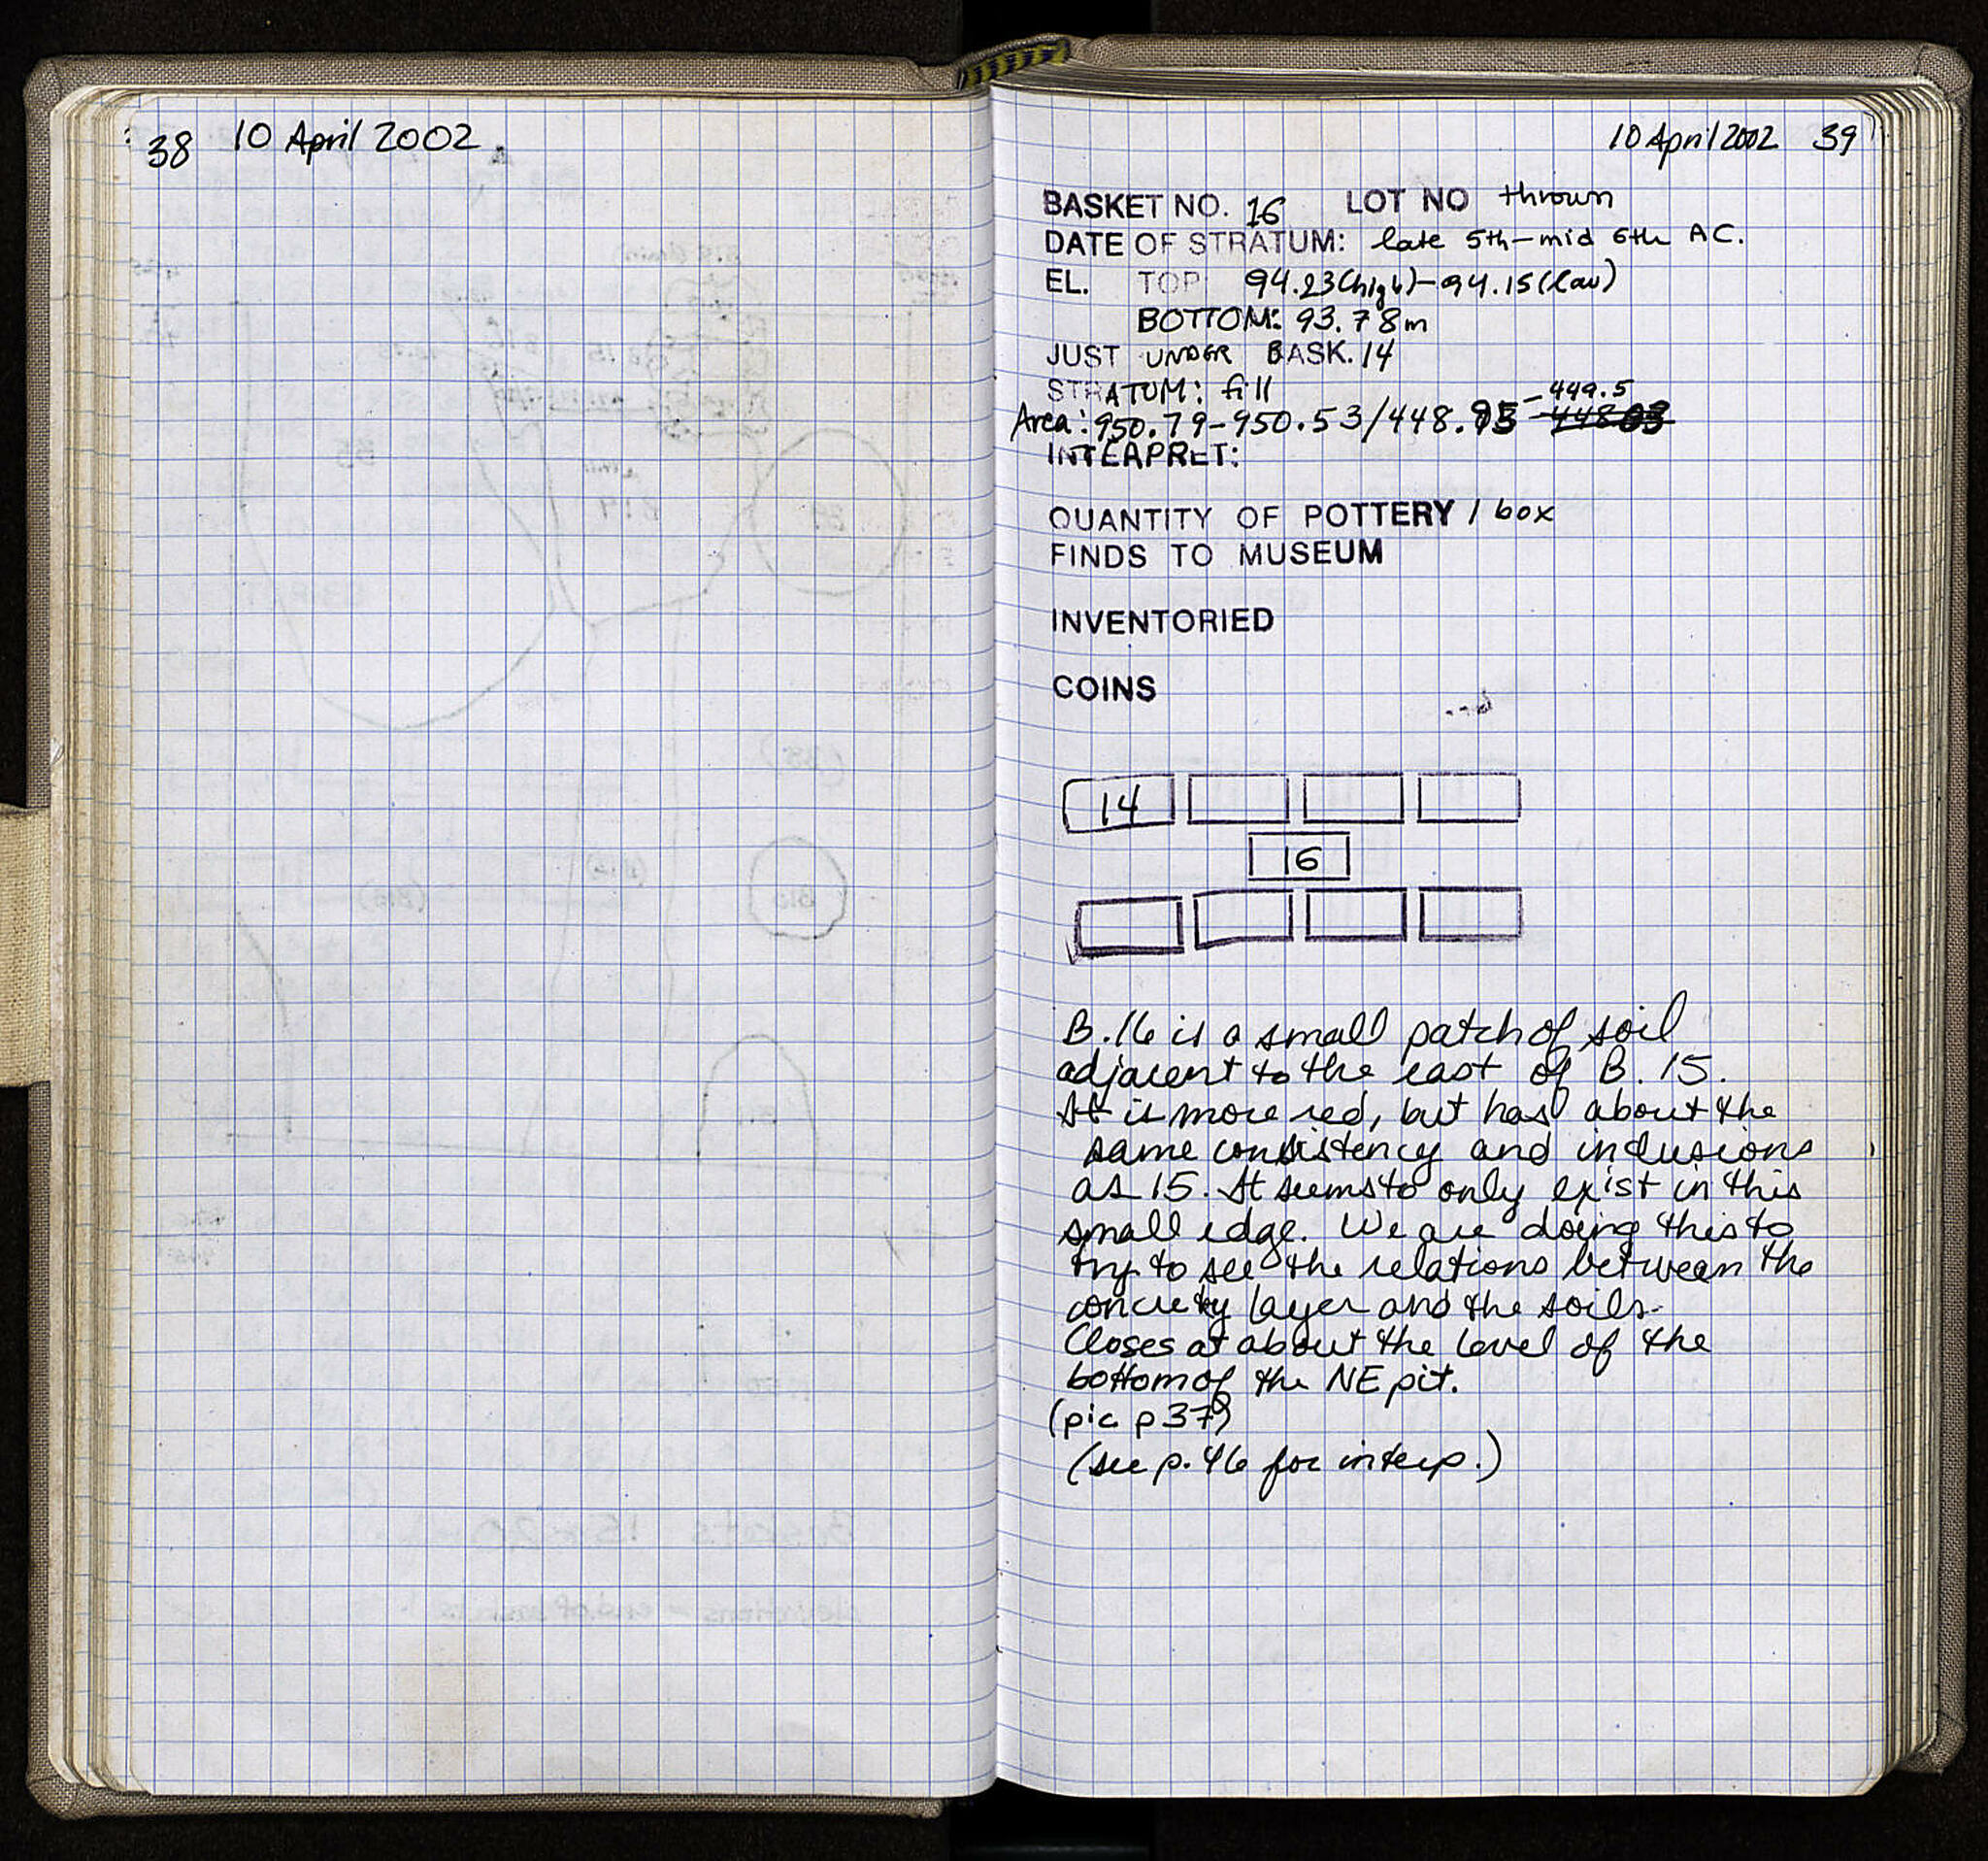 38 10 April 2002
10 April 2002 39
BASKET NO. 16 LOT NO thrown
DATE OF STRATUM: late 5th-mid 6th AC.
EL. TOP: 94.23(high)-94.15(low)
BOTTOM: 93.78m
JUST UNDER BASK. 14
STRATUM: fill
-449.5
Area: 950.79-950.53/448.95
INTERPRET:
QUANTITY OF POTTERY 1 box
FINDS TO MUSEUM
INVENTORIED
COINS
14
16
B.16 is a small patch of soil
adjacent to the east of B. 15.
It is more red, but has about the
same consistency and inclusions
as 15. It seems to only exist in this
small edge. We are doing this to
try to see the relations between the
concrety layer and the soils.
Closes at about the level of the
bottom of the NE pit.
(pic p 37)
(see p. 46 for interp.)